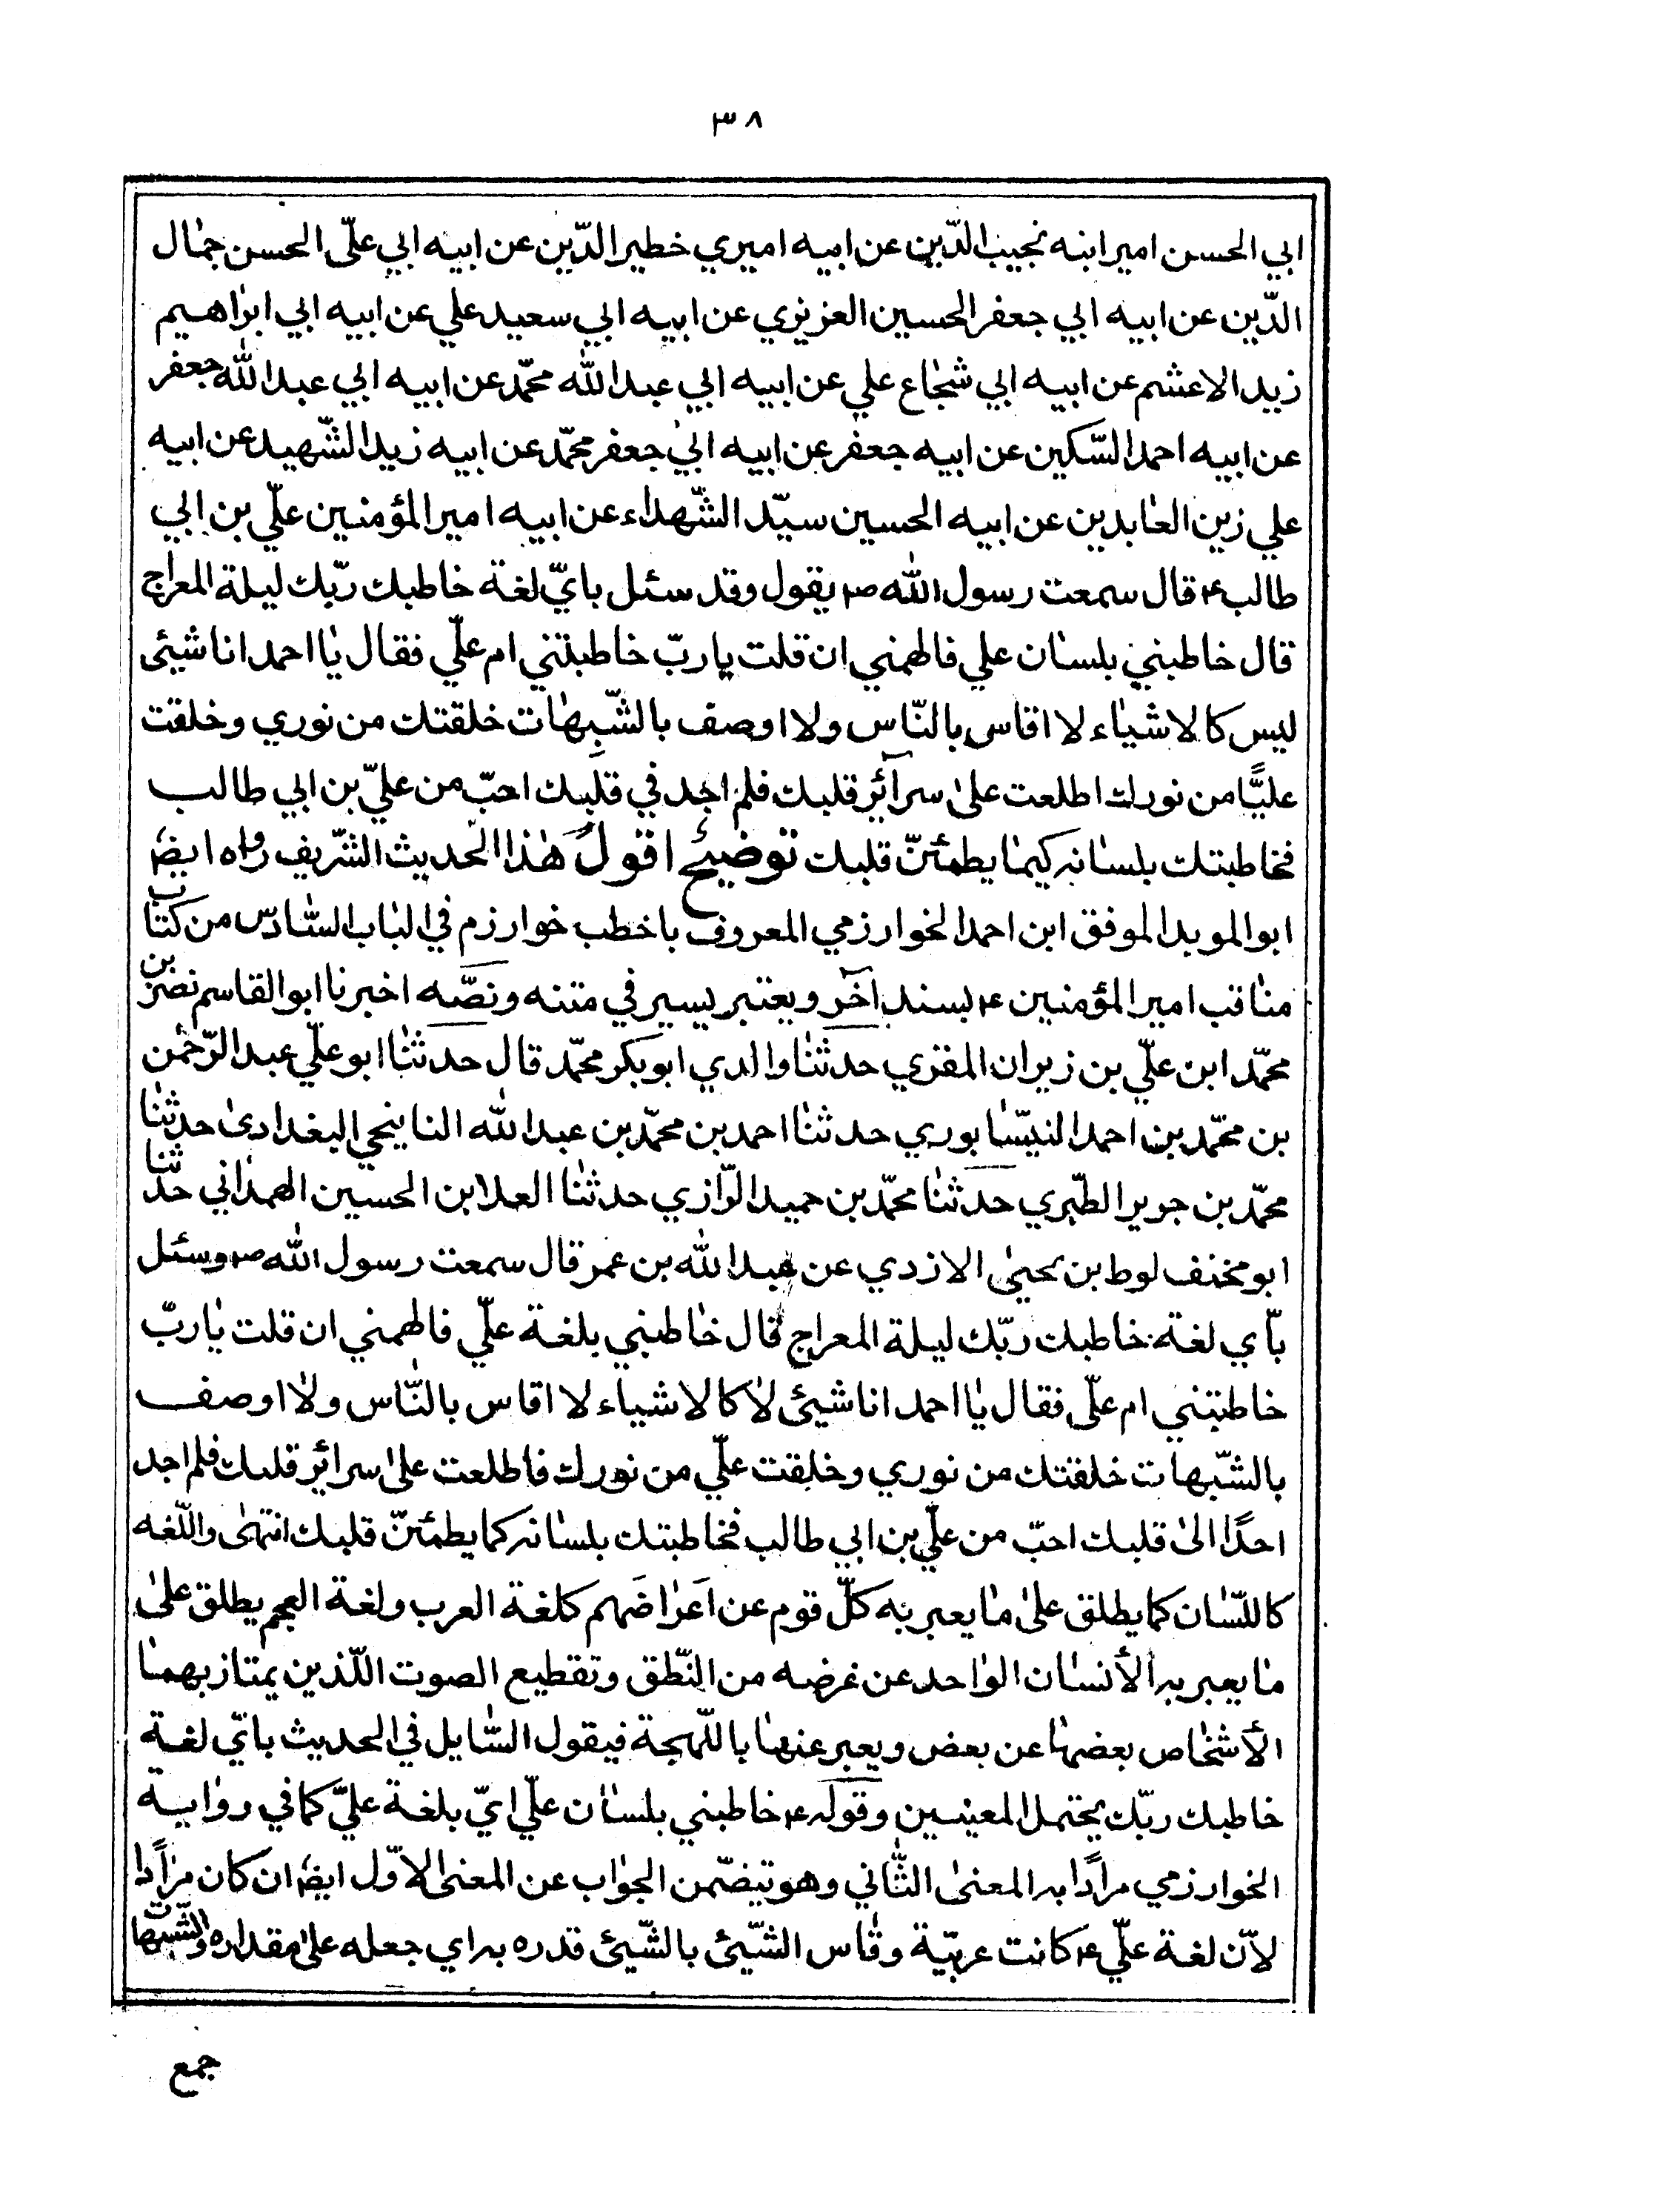 ٣٨
ابي الحسن اميرابنه نجيب الدّين عن ابيه اميري خطير الدّين عن ابيه ابي علّى الحسن جمٰال
الدّين عن ابيه ابي جعفر الحسين العزيزي عن ابيه ابي سعيد علي عن ابيه ابي ابرٰاهيم
زيد الاعشم عن ابيه ابي شجٰاع علي عن ابيه ابي عبد اللّٰه محمّد عن ابيه ابي عبد اللّٰه جعفر
عن ابيه احمد السّكين عن ابيه جعفر عن ابيه ابي جعفر محمّد عن ابيه زيد الشّهيد عن ابيه
علي زين العٰابدين عن ابيه الحسين سيّد الشّهدٰاء عن ابيه امير المؤمنين علّي بن ابي
طالب ع قال سمعت رسول اللّٰه ص يقول وقد سئل بايّ لغة خاطبك ربّك ليلة المعراج
قال خاطبني بلسٰان علي فالهمني ان قلت يا ربّ خاطبتني ام علّي فقال يٰا احمد انا شيئى
ليس كالاشيٰاء لا اقاس بالنّاس ولا اوصف بالشّبهٰات خلقتك من نوري وخلقت
عليًّا من نورك اطلعت علىٰ سرآئر قلبك فلم اجد في قلبك احبّ من عليّ بن ابي طالب
فخاطبتك بلسٰانه كيمٰا يطمئنّ قلبك توضيح اقول هٰذا الحديث الشّريف روٰاه ايضٰا
ابو الموید الموفق ابن احمد الخوارزمي المعروف باخطب خوارزم في البٰاب السّٰادس من كتٰاب
منٰاقب امير المؤمنين ع بسند آخر ويعتبر يسير في متنه ونصّه اخبرنا ابو القاسم نصر بن
محمّد ابن علّي بن زيران المقري حدثنٰا والدي ابوبكر محمّد قال حدثنٰا ابو علّي عبد الرّحمٰن
بن محمّد بن احمد النيسٰابوري حدثنٰا احمد بن محمّد بن عبد اللّٰه الناينجي البغدادىٰ حدثنٰا
محمّد بن جرير الطّبري حدثنٰا محمّد بن حميد الرّازي حدثنٰا العلا بن الحسين الهمدٰاني حدثنا
ابو مخنف لوط بن يحيىٰ الازدي عن عبد اللّٰه بن عمر قال سمعت رسول اللّٰه ص وسئل
بأي لغة خاطبك ربّك ليلة المعراج فقال خٰاطبني بلغة علّي فالهمني ان قلت يٰا ربّ
خاطبتني ام علّي فقال يٰا احمد انا شيئى لاٰ كالاشياء لا اقاس بالنّاس ولاٰ اوصف
بالشّبهات خلقتك من نوري وخلقت علّي من نورك فاطلعت علىٰ سرائر قلبك فلم اجد
احدًا الىٰ قلبك احبّ من علّي بن ابي طالب فخاطبتك بلسٰانه كما يطمئنّ قلبك انتهىٰ واللّغه
كاللّسٰان كما يطلق علىٰ مٰا يعبر به كلّ قوم عن اَعرٰاضَهم كلغة العرب ولغة العجم يطلق علىٰ
مٰا يعبر به الأنسٰان الوٰاحد عن غرضه من النّطق وتقطيع الصوت اللّذين يمتاز بهمٰا
الأشخٰاص بعضهٰا عن بعض ويعبر عنهٰا باللّهجة فيقول السّٰايل في الحديث بايّ لغة
خاطبك ربّك يحتمل المعنيين وقوله ع خاطبني بلسٰان علّي ايّ بلغة عليّ كما في روٰاية
الخوارزمي مرادًا به المعنىٰ الثّٰاني وهو تيضّمن الجوٰاب عن المعنىٰ الاوّل ايضٰا ان كان مرٰادًا
لاّن لغة علّي ع كانت عربيّة وقٰاس الشّيئ بالشّيئ قدره به اي جعله علىٰ مقداره والشّبهات
جمع